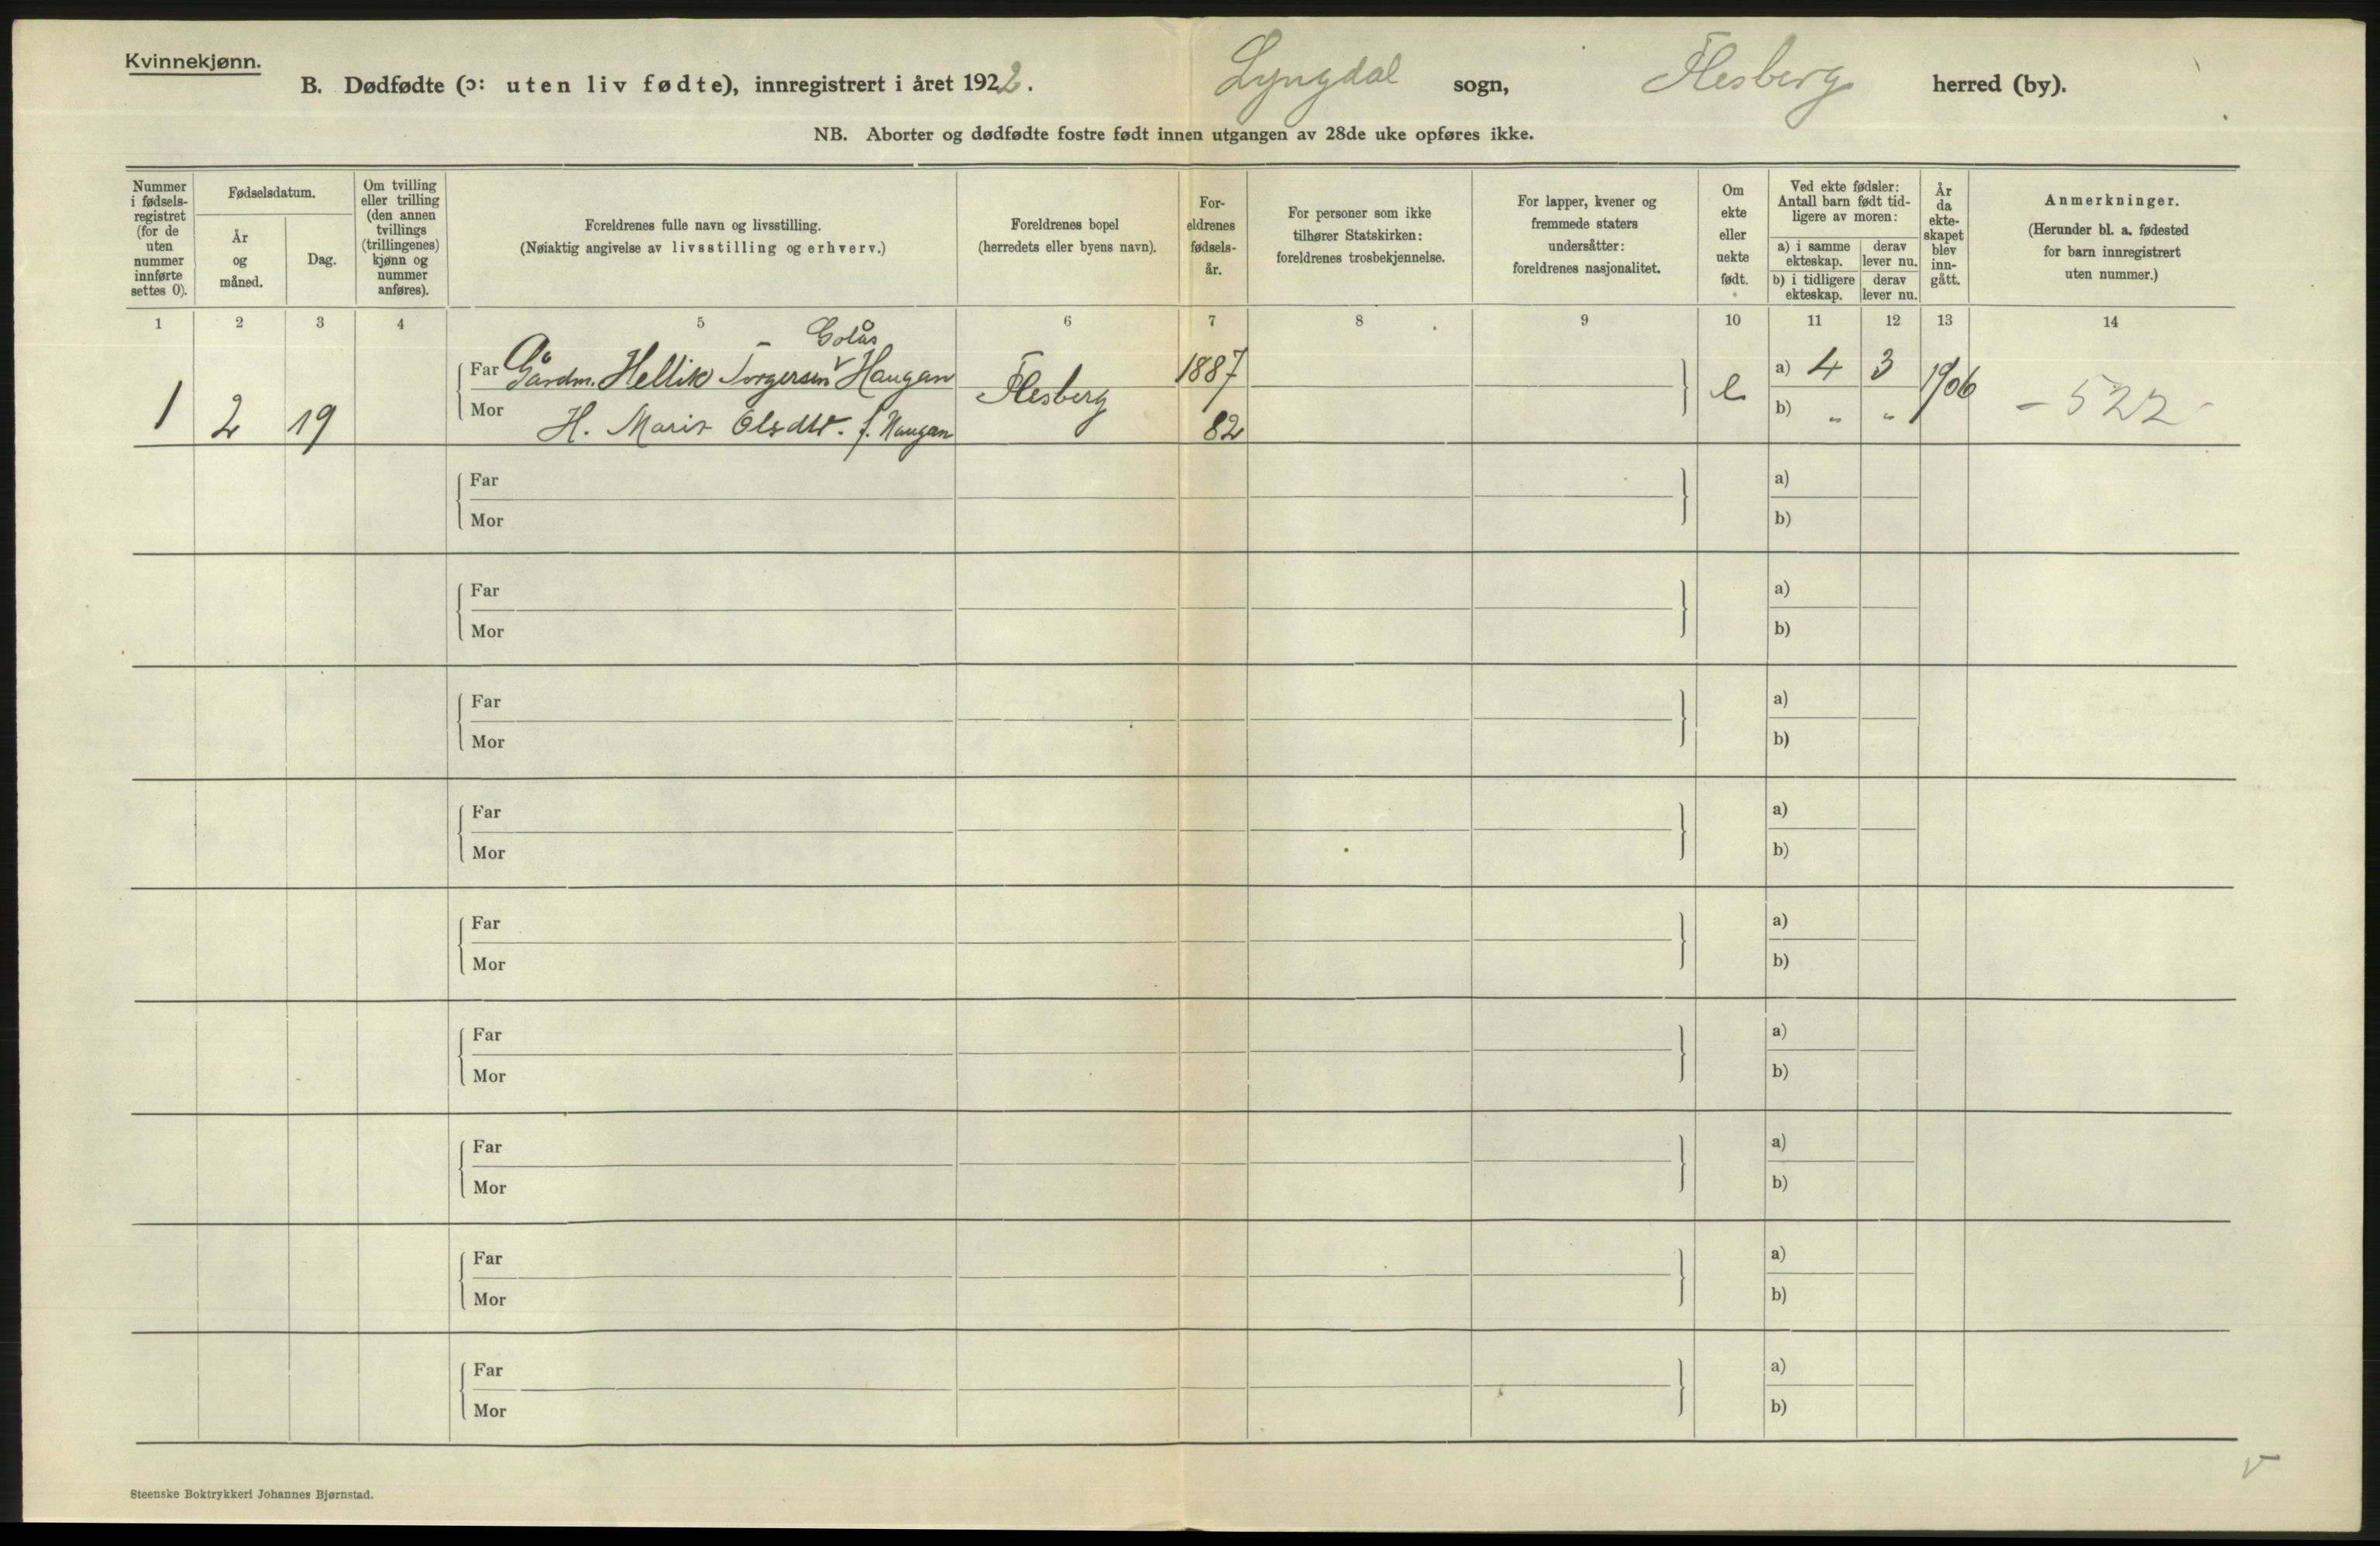 Kvinnekjønn.
B. Dødfødte (ɔ: uten liv fødte), innregistrert i året 1922.
Lyngdal sogn, Flesberg herred (by).
NB. Aborter og dødfødte fostre født innen utgangen av 28de uke opføres ikke.
Nummer i fødsels-registret (for de uten nummer innførte settes 0).
Fødselsdatum.
År og måned.
Dag.
Om tvilling eller trilling (den annen tvillings (trillingenes) kjønn og nummer anføres).
Foreldrenes fulle navn og livsstilling.
(Nøiaktig angivelse av livsstilling og erhverv.)
Foreldrenes bopel
(herredets eller byens navn).
For-eldrenes fødsels-år.
For personer som ikke tilhører Statskirken: foreldrenes trosbekjennelse.
For lapper, kvener og fremmede staters undersåtter: foreldrenes nasjonalitet.
Om ekte eller uekte født.
Ved ekte fødsler: Antall barn født tid-ligere av moren:
a) i samme ekteskap.
derav lever nu.
b) i tidligere ekteskap.
derav lever nu.
År da ekte-skapet blev inn-gått.
Anmerkninger.
(Herunder bl. a. fødested for barn innregistrert uten nummer.)
1 2 3 4 5 6 7 8 9 10 11 12 13 14
Golås
Far Gårdm. Hellik Torgersen Haugan 1887 a) 4 3
1 2 19 Flesberg e 1906 - 522 -
Mor H. Marit Olsdtr. f. Haugan 82 b) " "
Far a)
Mor b)
Far a)
Mor b)
Far a)
Mor b)
Far a)
Mor b)
Far a)
Mor b)
Far a)
Mor b)
Far a)
Mor b)
Far a)
Mor b)
Far a)
Mor b)
Steenske Boktrykkeri Johannes Bjørnstad.